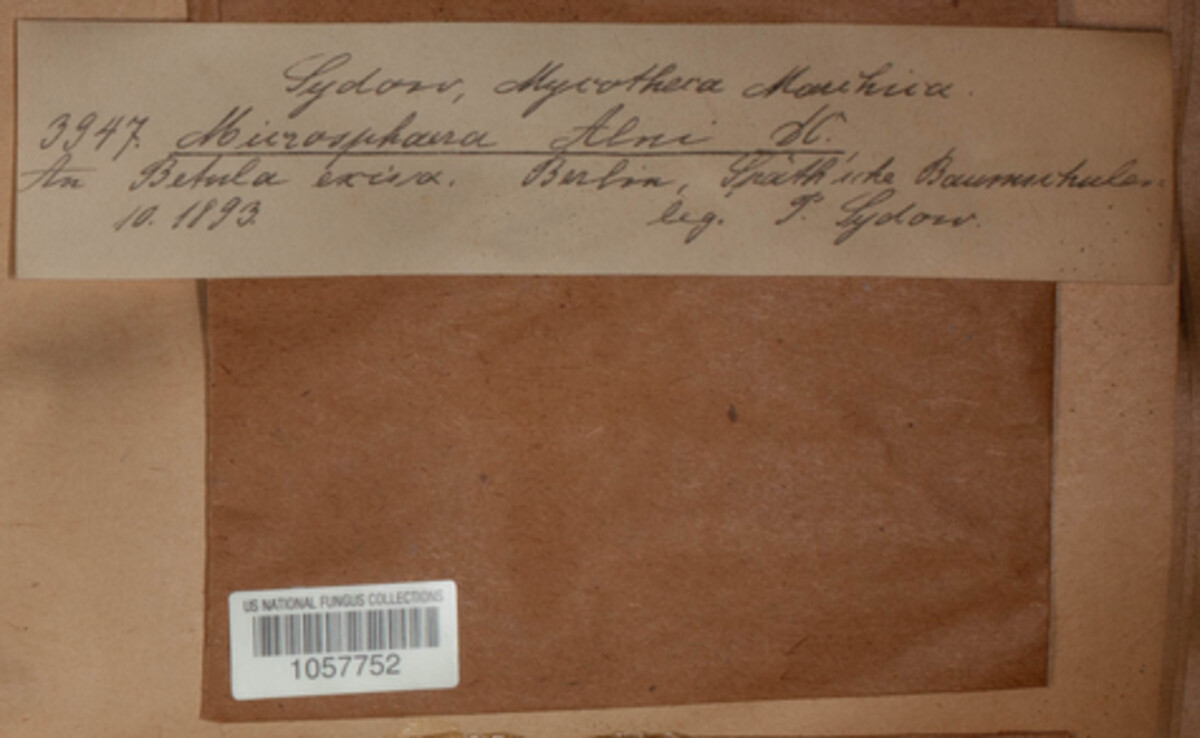 Sydow, Mycotheca Marchica.
3947. Microsphaera Alni DC.
An Betula excisa. Berlin, Späth'sche Baumschulen.
10. 1893. leg. P. Sydow.
US NATIONAL FUNGUS COLLECTIONS
1057752